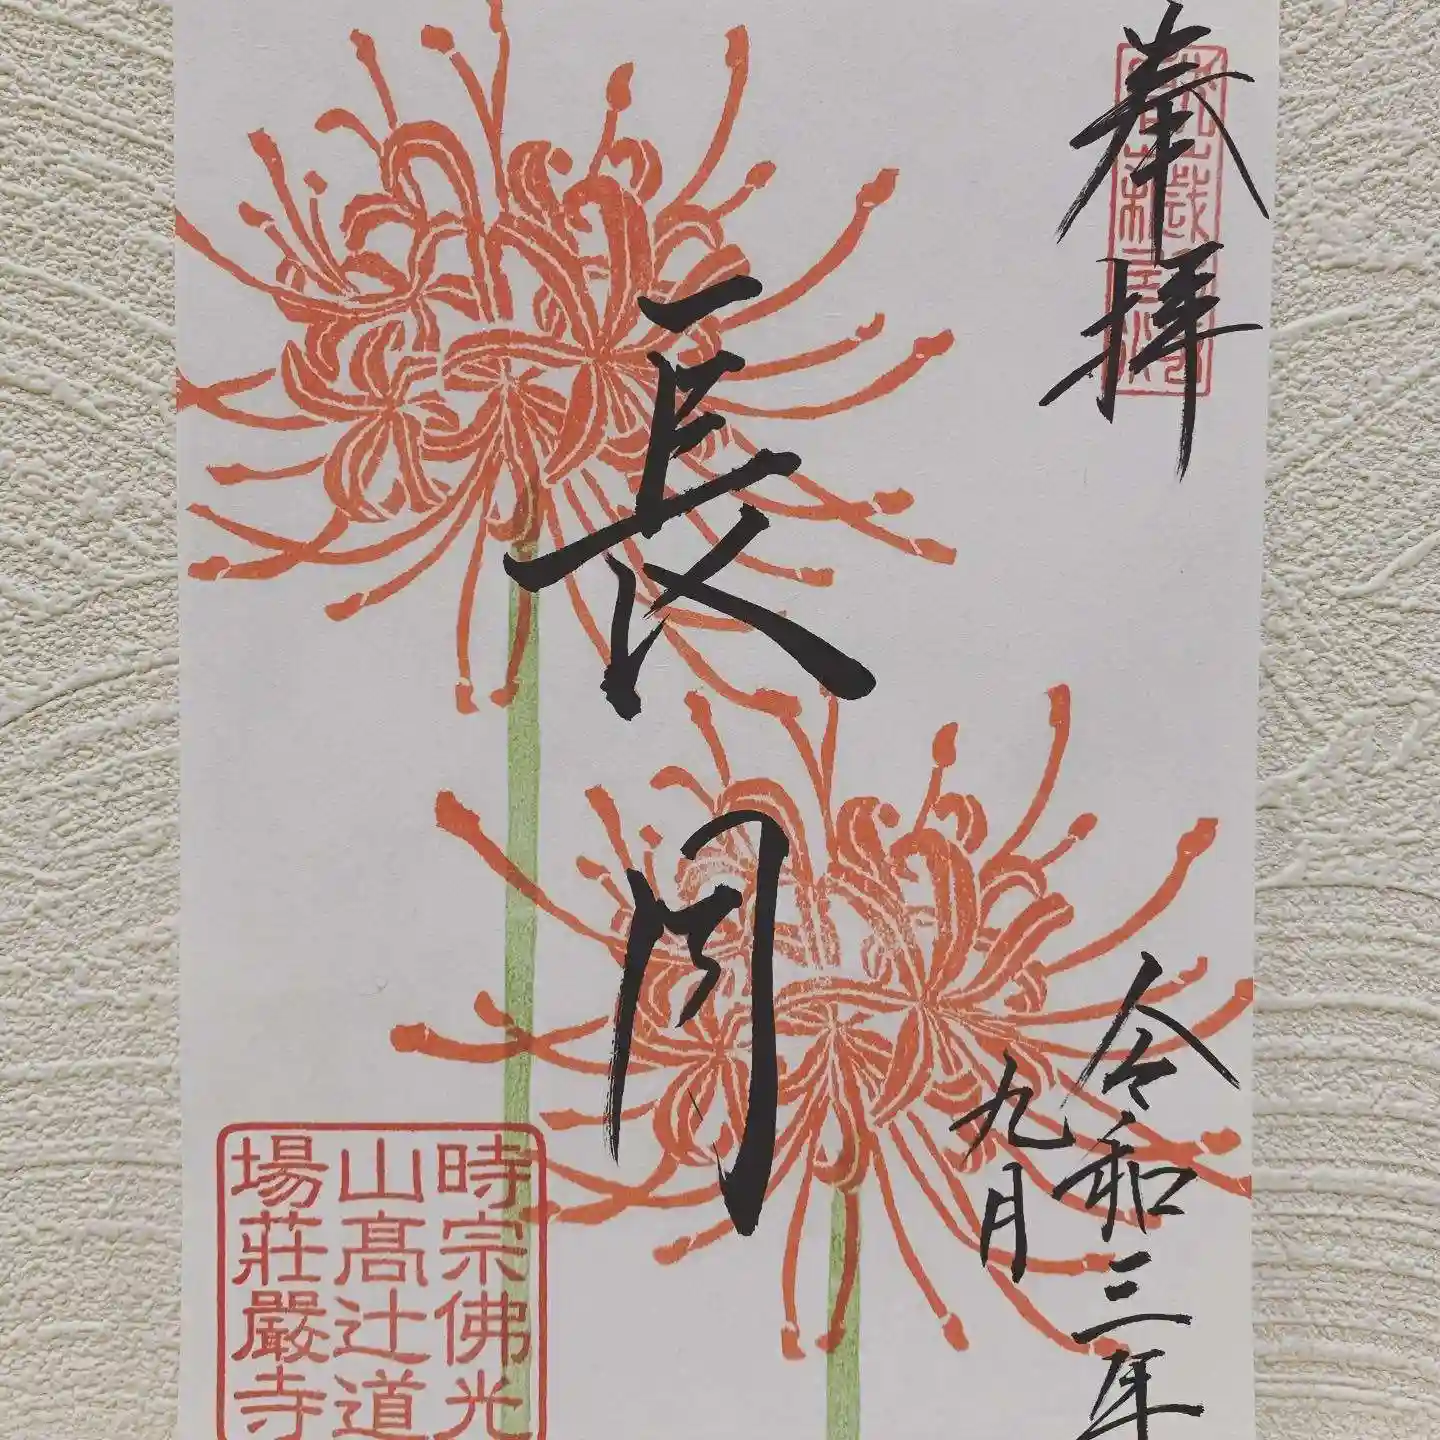 奉拝
長月
令和三年
九月
時宗佛光
山高辻道
場莊嚴寺